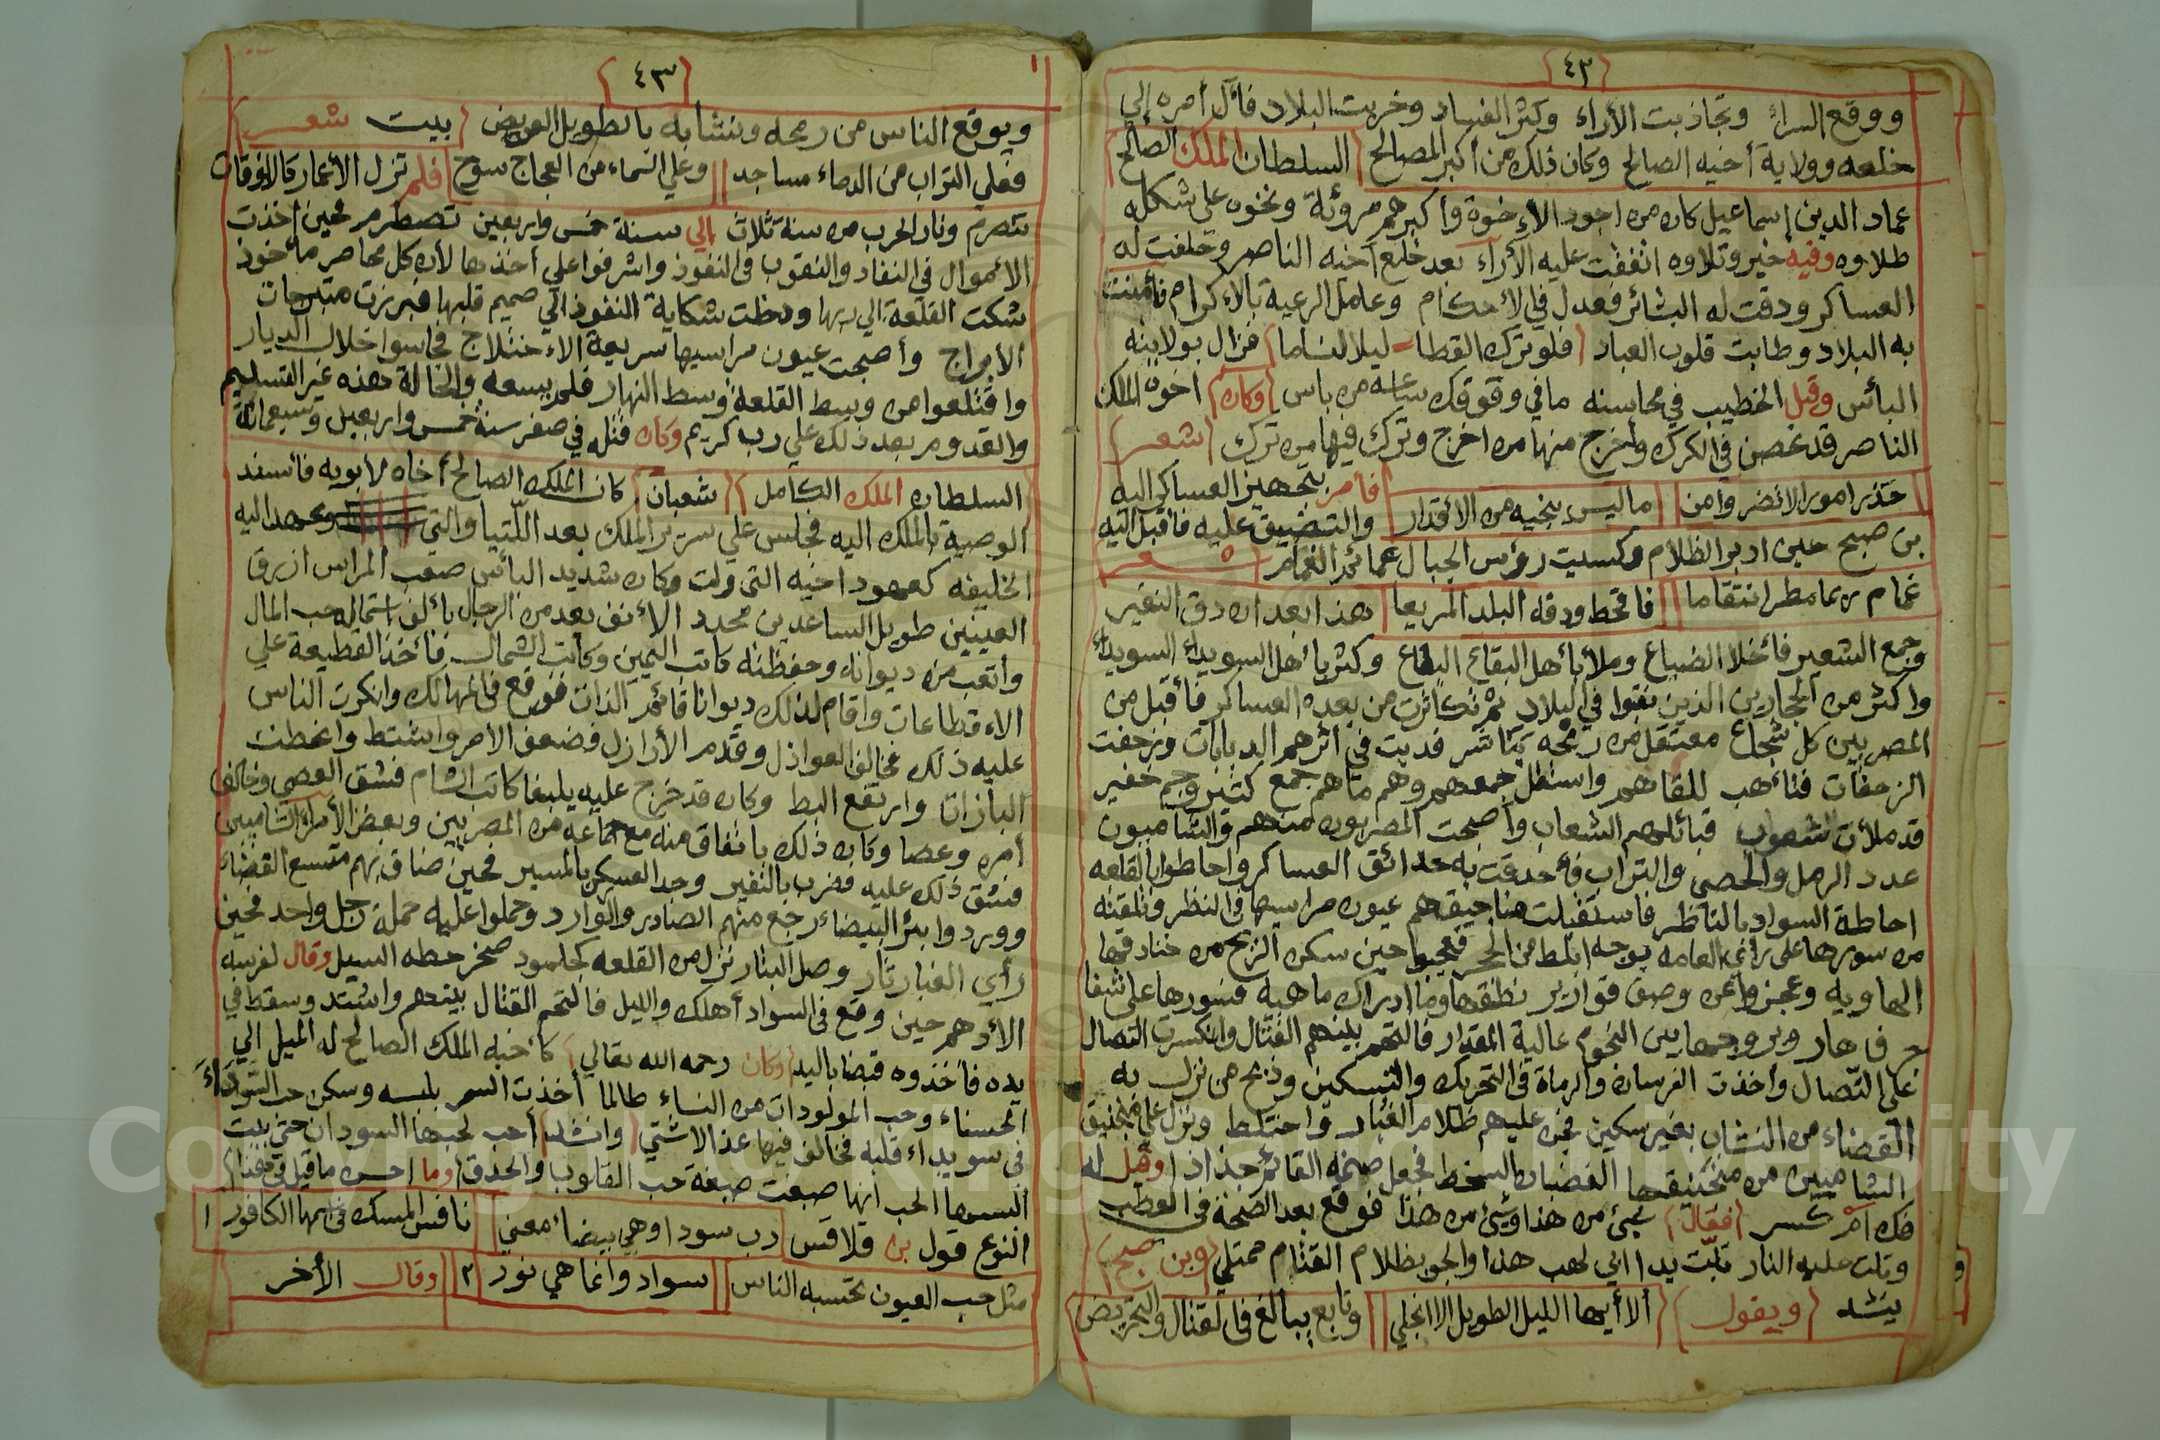 ٤٢
ووقع السراء وتجاذبت الأراء وكثر الفساد وخربت البلاد فآل أمره إلي
خلعه وولاية أخيه الصالح وكان ذلك من أكبر المصالح السلطان الملك الصالح
عماد الدين إسماعيل كان من اجود الأخوة وأكبرهم مروئة ونخوه علي شكله
طلاوه وفيه خير وتلاوه اتفقت عليه الأراء بعد خلع أخيه الناصر وحلفت له
العساكر ودقت له البشائر فعدل في الأحكام وعامل الرعية بالأكرام فأمنت
به البلاد وطابت قلوب العباد فلو ترك القطا ليلا لناما فزال بولايته
البأس وقيل الخطيب في محاسنه ما في وقوفك ساعه من باس وكان اخوه الملك
الناصر قد تحصن في الكرك وأخرج منها من اخرج وترك فيها من ترك شعر
حذر امور الا تضر وامن ما ليس ينجيه من الاقدار فأمر بتجهيز العساكر اليه والتضييق عليه فأقبل اليه
بن صبح حين ادبر الظلام وكسيت رؤس الجبال عمائم الغمام شعر
غمام ربما مطر انتقاما فاقحط ودقه البلد المريعا هذا بعد ان دق النفير
وجمع الشعير فأخلا الضياع وملأ بأهل البقاع البقاع وكثر بأهل السويداء السويداء
واكثر من الجارين الذين نقبوا في البلاد ثم تكاثرت من بعده العساكر فأقبل من
المصريين كل شجاع معتقل من رمحه فدبت في اثرهم الدبابات وزحفت
الزحفات فتأهب للقاهم واستقل جمعهم وهم ما هم جمع كثير وجم غفير
قد ملأت شعوب قبائلهم الشعاب وأصبحت المصريون منهم والشاميون
عدد الرمل والحصي والتراب فأحدقت به حدائق العساكر واحاطوا بالقلعه
احاطة السواد بالناظر فاستقبلت مناجيقهم عيون مراسيها في النظر وتلقته
من سورها علي رأي العامه بوجه ابلط من الحجر فعجبوا حين سكن الريح من خنادقها
الهاويه وعجزوا عن وصف قوارير نطقها وما ادراك ماهيه فسورها علي شفا
جرف هار وبروجها بين النجوم عالية المقدار فالتحم بينهم القتال وانكسرت النصال
علي النصال وأخذت الفرسان والرماة في التحريك والتسكين وذبح من نزل به
القضاء من النشاب بغير سكين فجن عليهم ظلام الغبار واختلط ونزل علي منجنيق
الشاميين من منجنيقها الغضبان السخط فجعل صخه القائم جذاذا وقيل له
فك ام كسر فقال شيئ من هذا وشيئ من هذا فوقع بعد الصحة في العطب
وتلت عليه النار تبت يدا ابي لهب هذا والجو بظلام القتام ممتلي وبن صبح
ينشد ويقول ألا أيها الليل الطويل الا انجلي وتابع يبالغ في القتال والتحريض
٤٣
ويوقع الناس من رمحه ونشابه بالطويل العريض بيت شعر
فعلي التراب من الدماء مساجد وعلي السماء من العجاج سوح فلم تزل الأعمار كالاوقات
تتصرم ونار الحرب من سنة ثلاث إلي سنة خمس واربعين تضطرم فحين اخذت
الأموال في النفاد والنقوب في النفوذ واشرفوا علي أخذها لأن كل محاصر مأخوذ
شكت القلعة الي ربها ودخلت شكاية النفوذ الي صميم قلبها فبرزت متبرجات
الأبراج وأصبحت عيون مراسيها سريعة الاختلاج فجاسوا خلال الديار
واقتلعوا من وسط القلعة وسط النهار فلم يسعه والحالة هذه غير التسليم
والقدوم بعد ذلك علي رب كريم وكان قتله في صفر سنة خمس واربعين وسبعمائة
السلطان الملك الكامل شعبان كان الملك الصالح أخاه لأبويه فأسند
الوصية بالملك اليه فجلس علي سرير الملك بعد اللتيا والتي وعهد اليه
الخليفه كعهود اخيه التي ولت وكان شديد البأس صعب المراس ازرق
العينين طويل الساعدين محدد الأنف بعد من الرجال بألف استماله حب المال
واتعب من ديوانه وحفظته كاتب اليمين وكاتب الشمال فأخذ القطيعة علي
الاقطاعات واقام لذلك ديوانا قائم الذات فوقع في المهالك وانكرت الناس
عليه ذلك فخالف العواذل وقدم الأرازل فضعف الأمر واشتط وانحطت
البازات وارتفع البط وكان قد خرج عليه يلبغا كاتب الشام فشق العصي وخالف
أمره وعصا وكان ذلك باتفاق منه مع جماعه من المصريين وبعض الأمراء الشاميين
فشق ذلك عليه فضرب بالنفير وجد العسكر بالمسير فحين ضاق بهم متسع الفضاء
ووردوا بئر البيضاء رجع منهم الصادر والوارد وحملوا عليه حملة رجل واحد فحين
رأي الغبار ثار وصل البتار نزل من القلعه كجلمود صخر حطه السيل وقال لفرسه
الأدهم حين وقع في السواد أهلك والليل فالتحم القتال بينهم واشتد وسقط في
يده فأخذوه قبضا باليد وكان رحمه الله تعالي كأخيه الملك الصالح له الميل الي
الحسناء وحب المولودات من النساء طالما أخذت السمر بلبه وسكن حب السوداء
في سويداء قلبه فخالف فيها عذالا شتي وانشد أحب لحبها السودان حتي بيت
البسها الحب انها صبغت صبغة حب القلوب والحدق وما احسن ما قيل في هذا
النوع قول بن قلاقس رب سودا وهي بيضاء معني نافس المسك في اسمها الكافور ١
مثل حب العيون تحتسبه الناس سواد وانما هي نور ٢ وقال الأخر
Copyright © King Saud University